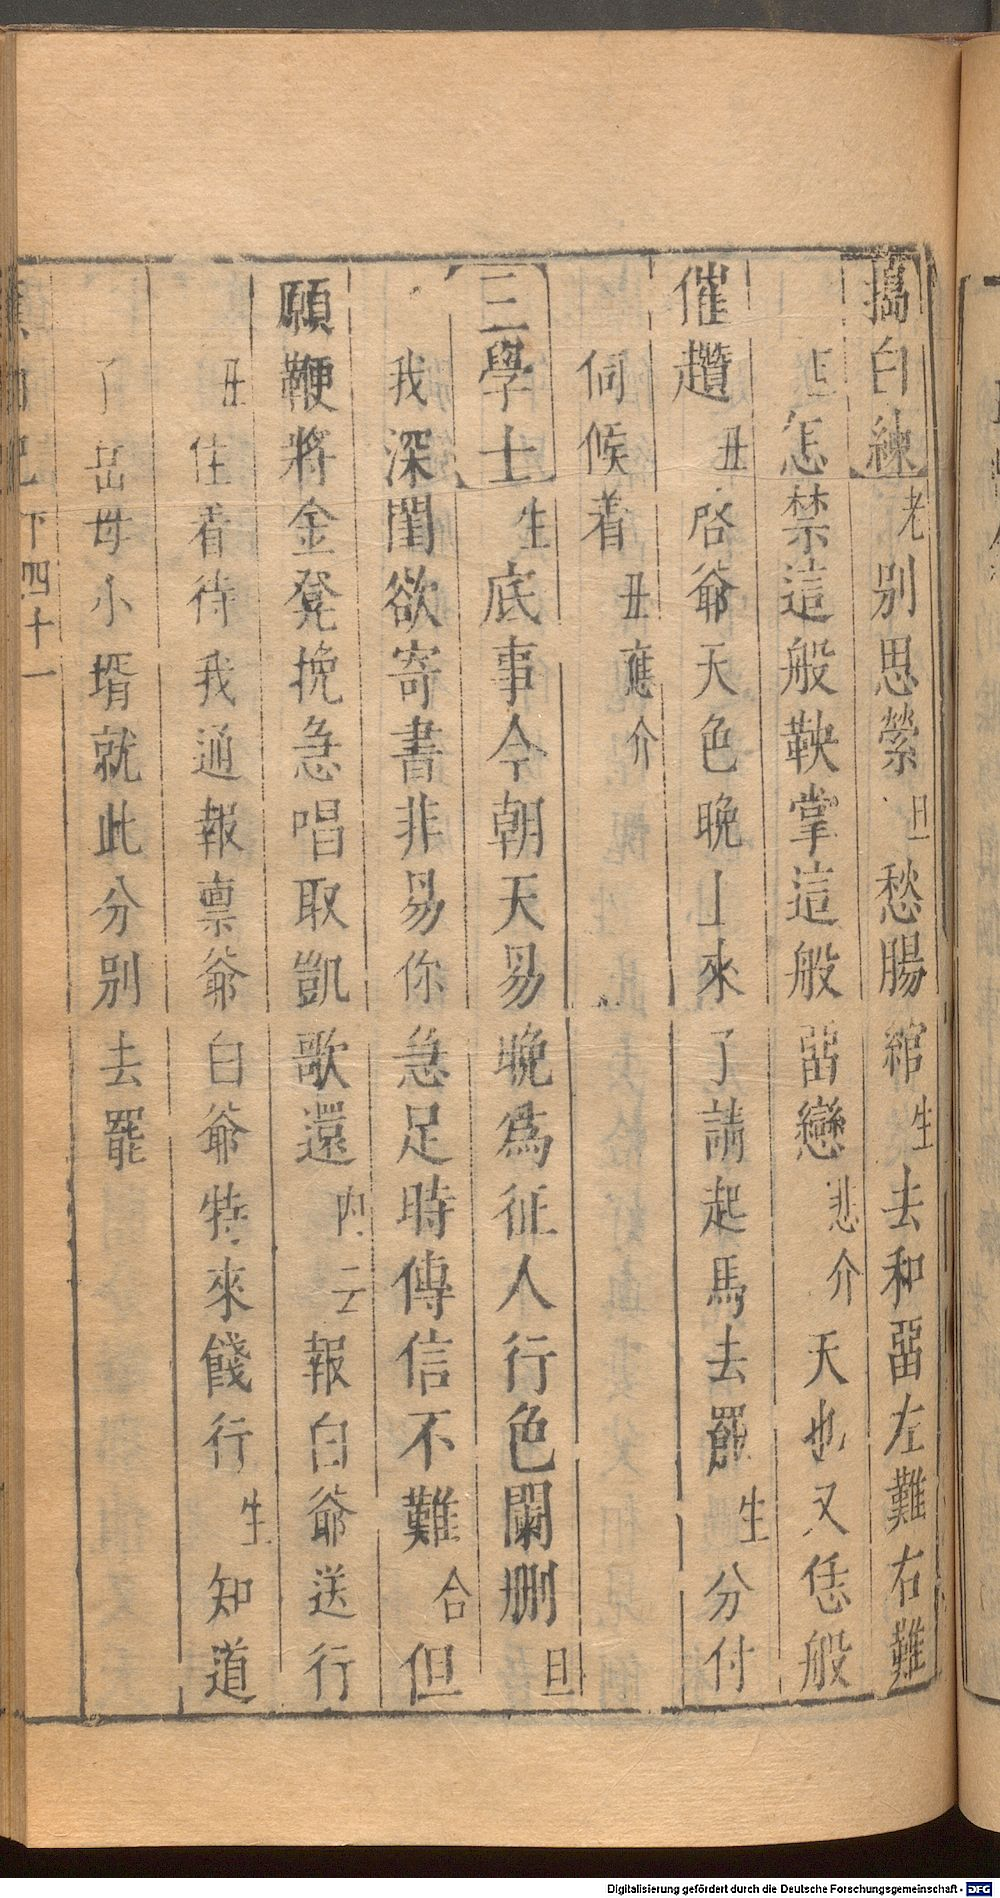 搗白練老別思縈旦愁腸綰生去和畱左難右難
旦怎禁這般鞅掌這般畱戀悲介天也又恁般
催趲丑啓爺天色晚上來了請起馬去罷生分付
伺候着丑應介
三學士生底事今朝天易晚爲征人行色闌刪旦
我深閨欲寄書非易你急足時傳信不難合但
願鞭將金凳挽急唱取凱歌還內云報白爺送行
丑住着待我通報禀爺白爺特來餞行生知道
了岳母小壻就此分別去罷
下四十一
Digitalisierung gefördert durch die Deutsche Forschungsgemeinschaft - DFG